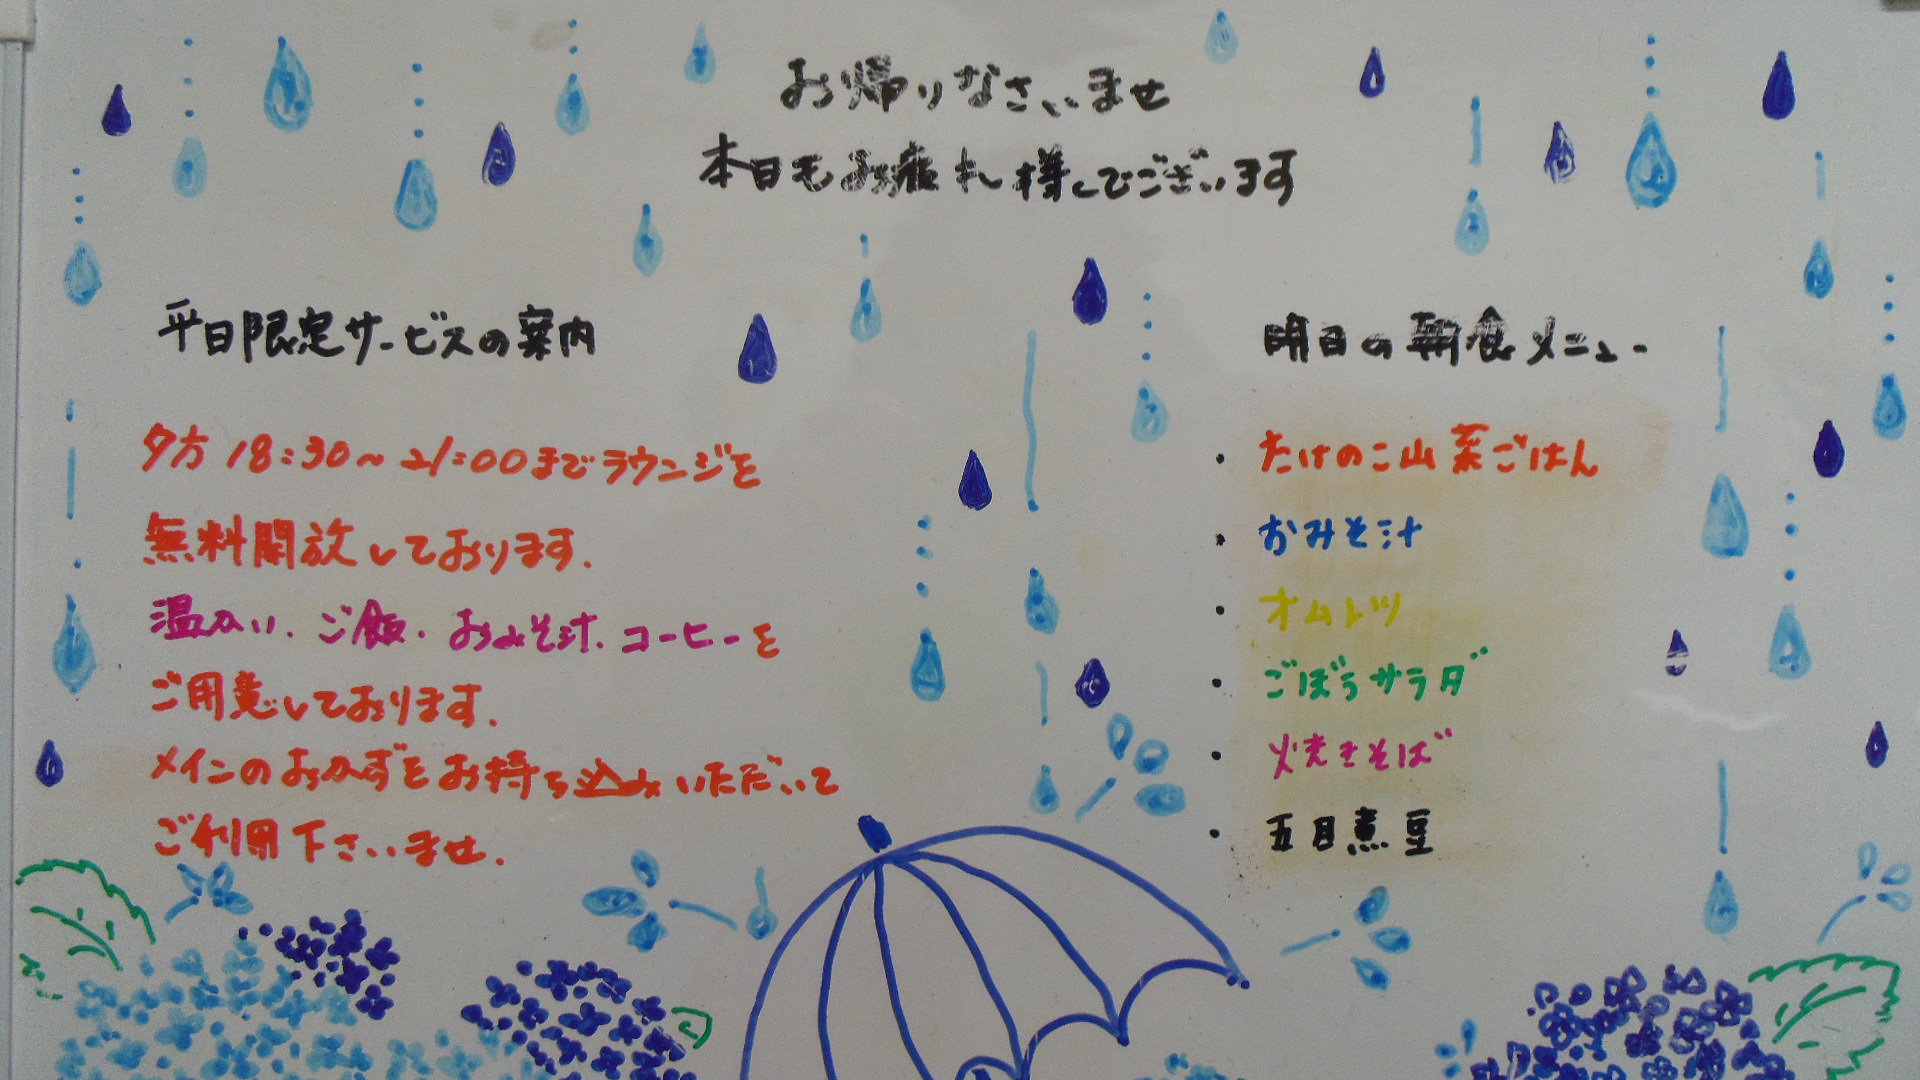 お帰りなさいませ
本日もお疲れ様でございます
平日限定サービスの案内
夕方18:30~21:00までラウンジを
無料開放しております.
温かい.ご飯.おみそ汁.コーヒーを
ご用意しております.
メインのおかずをお持ち込みいただいて
ご利用下さいませ.
明日の朝食メニュー
・たけのこ山菜ごはん
・おみそ汁
・オムレツ
・ごぼうサラダ
・焼きそば
・五目煮豆